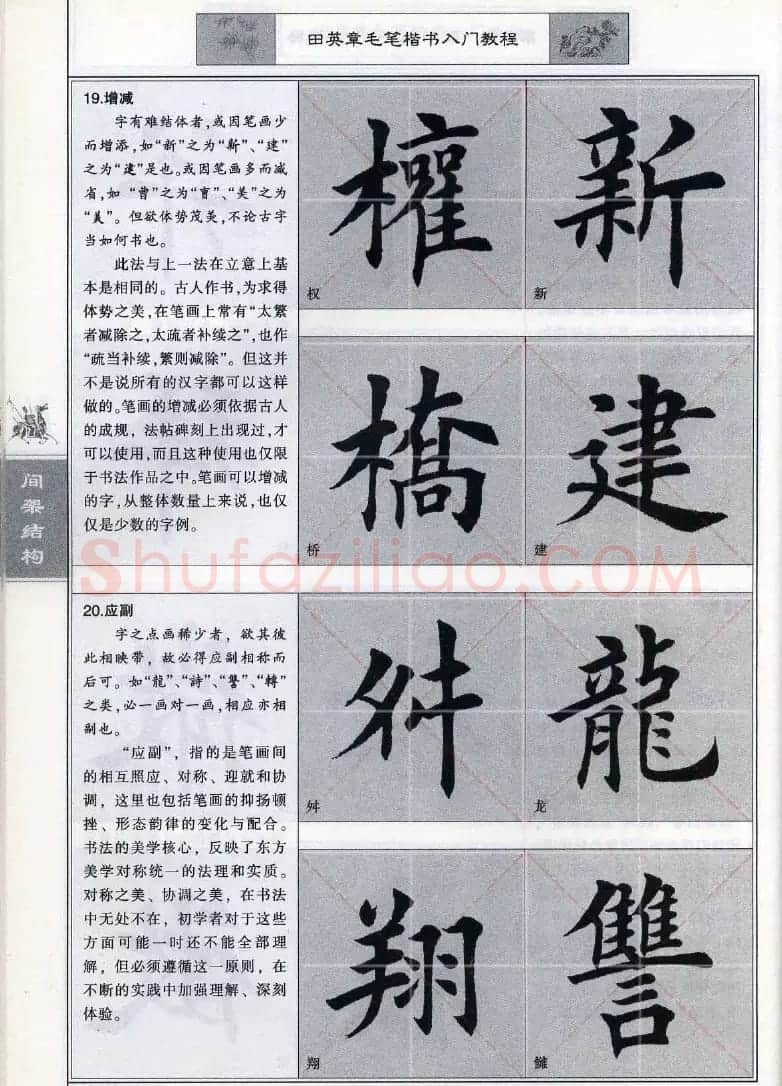 田英章毛笔楷书入门教程
19.增减
字有难结体者,或因笔画少
而增添,如“新”之为“新”、“建”
之为“建”是也。或因笔画多而减
省,如“曹”之为“曺”、“美”之为
“美”。但欲体势茂美,不论古字
当如何书也。
此法与上一法在立意上基
本是相同的。古人作书,为求得
体势之美,在笔画上常有“太繁
者减除之,太疏者补续之”,也作
“疏当补续,繁则减除”。但这并
不是说所有的汉字都可以这样
做的。笔画的增减必须依据古人
的成规，法帖碑刻上出现过,才
可以使用,而且这种使用也仅限
于书法作品之中。笔画可以增减
的字,从整体数量上来说,也仅
仅是少数的字例。
權
权
新
新
橋
桥
建
建
间架结构
Shufaziliao.COM
20.应副
字之点画稀少者，欲其彼
此相映带，故必得应副相称而
后可。如“龍”、“詩”、“讐”、“轉”
之类,必一画对一画,相应亦相
副也。
“应副”，指的是笔画间
的相互照应、对称、迎就和协
调，这里也包括笔画的抑扬顿
挫、形态韵律的变化与配合。
书法的美学核心，反映了东方
美学对称统一的法理和实质。
对称之美、协调之美，在书法
中无处不在，初学者对于这些
方面可能一时还不能全部理
解，但必须遵循这一原则，在
不断的实践中加强理解、深刻
体验。
舛
舛
龍
龙
翔
翔
讐
雠